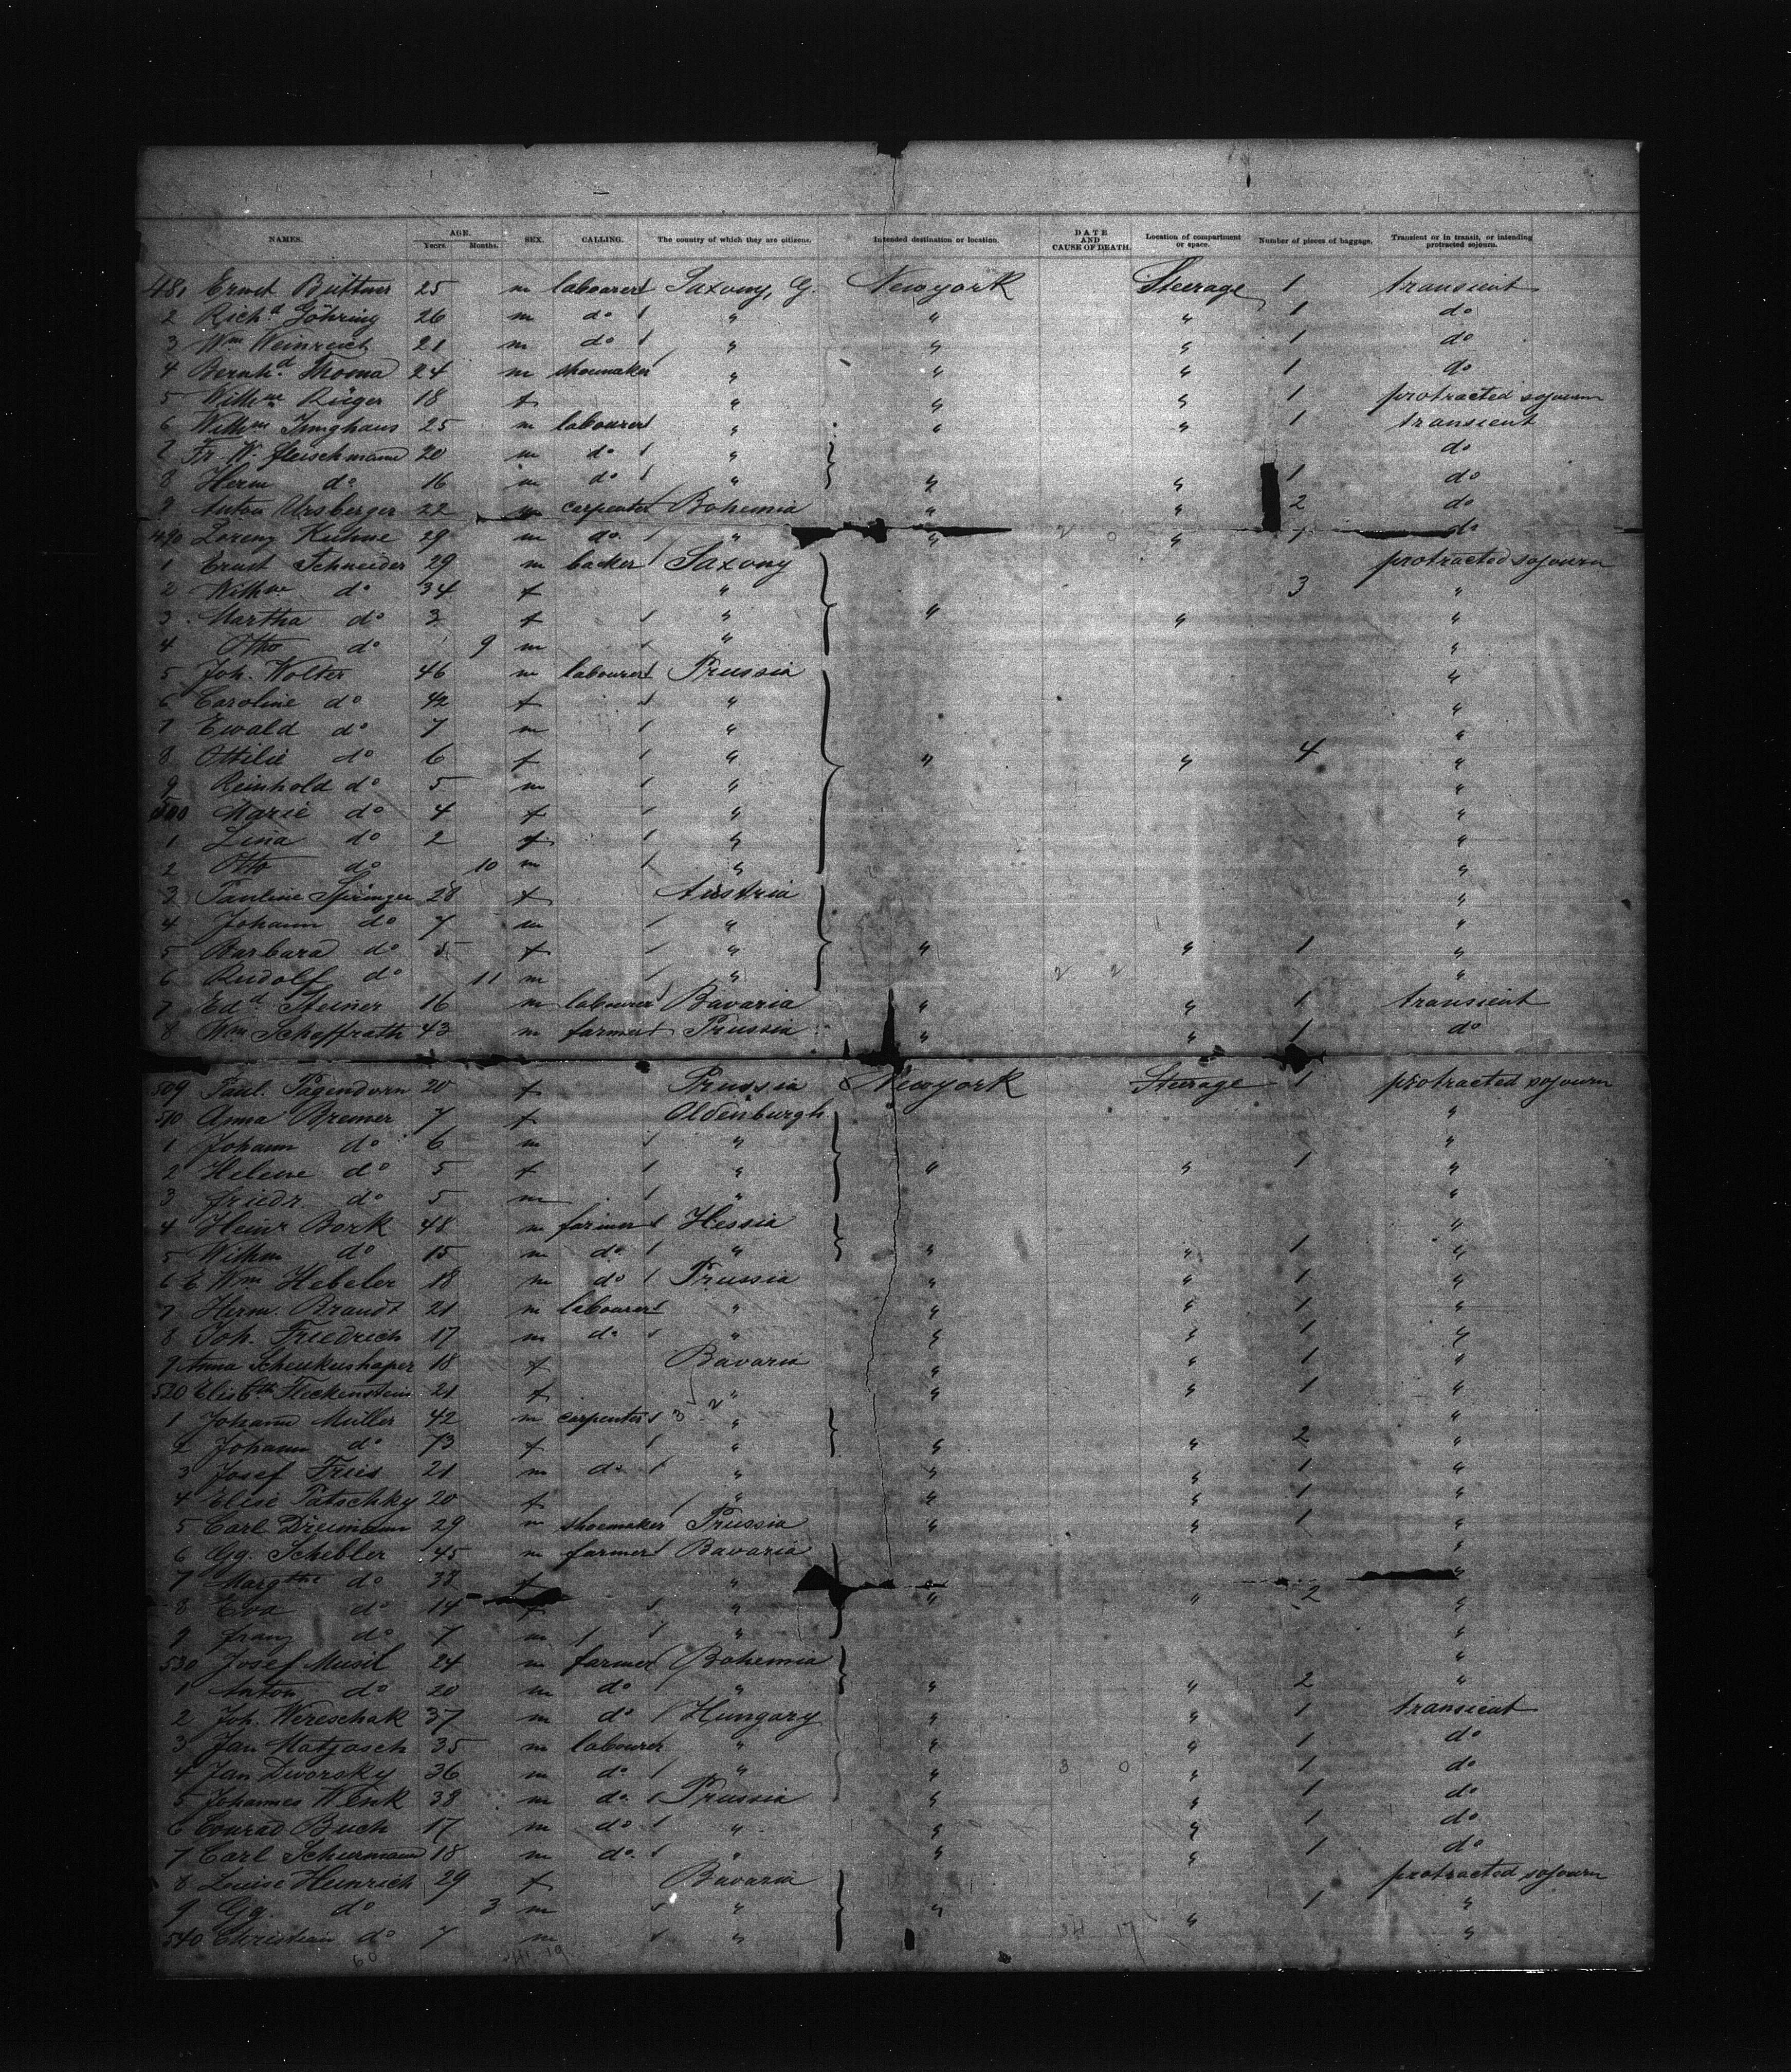 NAMES. AGE. Years. Months. SEX. CALLING. The country of which they are citizens. Intended destination or location. DATE AND CAUSE OF DEATH. Location of compartment or space. Number of pieces of baggage. Transient or in transit, or intending protracted sojourn.
481 Ernst Büttner 25 m labourer Saxony, G. Newyork Steerage 1 transient
2 Richd Göhring 26 m do " " " 1 do
3 Wm Weinreich 21 m do " " " 1 do
4 Bernhd Thoma 24 m shoemaker " " " 1 do
5 Wilhne Rüger 18 f " " " 1 protracted sojourn
6 Wilhm Junghaus 25 m labourer " " " 1 transient
7 Fr. W. Fleischmann 20 m do " do
8 Herm do 16 m do " " " 1 do
9 Anton Ursberger 22 m carpenter Bohemia " " 2 do
490 Lorenz Kuhne 29 m do " " " 1 do
1 Ernst Schneider 29 m backer Saxony protracted sojourn
2 Wilhne do 34 f " 3 "
3 Martha do 3 f " " " "
4 Otto do 9 m " "
5 Joh. Wolter 46 m labourer Prussia "
6 Caroline do 42 f " "
7 Ewald do 7 m " "
8 Ottilie do 6 f " " " 4 "
9 Reinhold do 5 m " "
500 Marie do 4 f " "
1 Lina do 2 f " "
2 Otto do 10 m " "
3 Pauline Springer 28 f Austria "
4 Johann do 7 m " "
5 Barbara do 5 f " " " 1 "
6 Rudolf do 11 m " "
7 Edd Steiner 16 m labourer Bavaria " " 1 transient
8 Wm Scheffrath 43 m farmer Prussia " " 1 do
509 Paul. Pagendorn 20 f Prussia Newyork Steerage 1 protracted sojourn
510 Anna Bremer 7 f Oldenburgh "
1 Johann do 6 m " "
2 Helene do 5 f " " " 1 "
3 Friedr. do 5 m " "
4 Heinr Bork 48 m farmer Hessia "
5 Wilhm do 15 m do " " " 1 "
6 C. Wm Hebeler 18 m do Prussia " " 1 "
7 Herm. Brandt 21 m labourer " " " 1 "
8 Joh. Friedrich 17 m do " " " 1 "
9 Anna 18 f Bavaria " " 1 "
520 Elisbth Fleckenstein 21 f " " " 1 "
1 Johann Müller 42 m carpenter " "
2 Johann do 73 f " " " 2 "
3 Josef Fries 21 m do " " " 1 "
4 Elise Patschky 20 f " " " 1 "
5 Carl Dreimann 29 m shoemaker Prussia " " 1 "
6 Gg. Schebler 45 m farmer Bavaria "
7 Margthe do 38 f " "
8 Eva do 14 f " " " 2 "
9 Franz do 7 m " "
530 Josef Musil 24 m farmer Bohemia "
1 Anton do 20 m do " " " 2 "
2 Joh. Wereschak 37 m do Hungary " " 1 transient
3 Jan Matjasch 35 m labourer " " " 1 do
4 Jan Dworsky 36 m do " " " 1 do
5 Johannes Wenk 38 m do Prussia " " 1 do
6 Conrad Buch 17 m do " " " 1 do
7 Carl Schurmann 18 m do " " " 1 do
8 Louise Heinrich 29 f Bavaria protracted sojourn
9 Gg. do 3 m " " " 1 "
540 Christian do 7 m " "